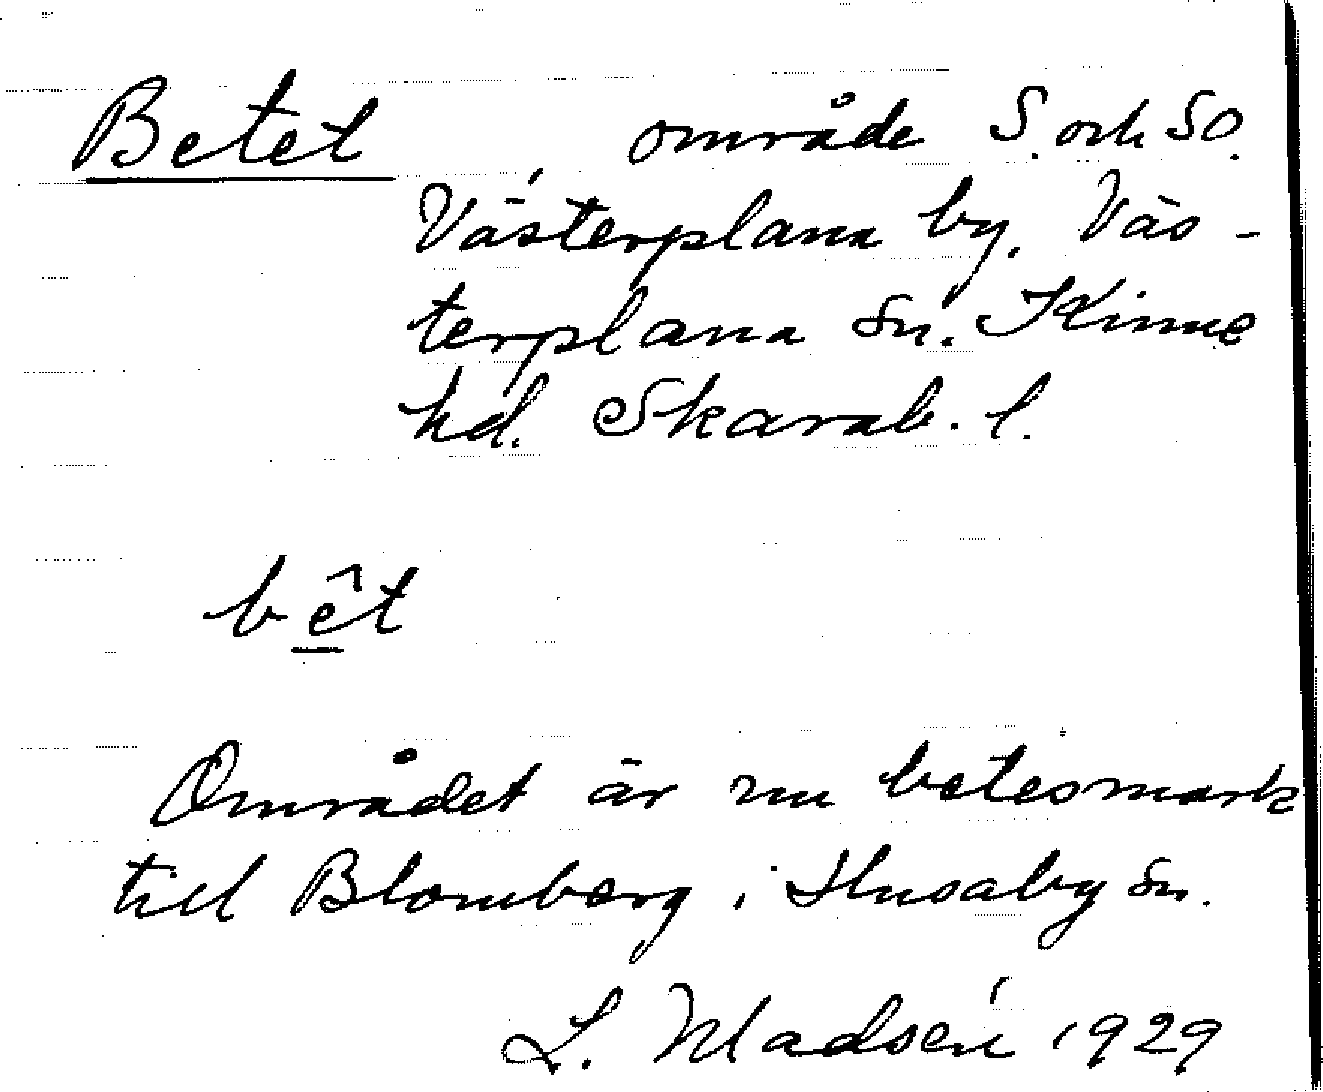 Betet område S. och SO.
Västerplana by. Väs-
terplana sn. Kinne
hd. Skarab. l.
bêt
Området är nu betesmark
till Blomberg i Husaby sn.
L. Madsén 1929